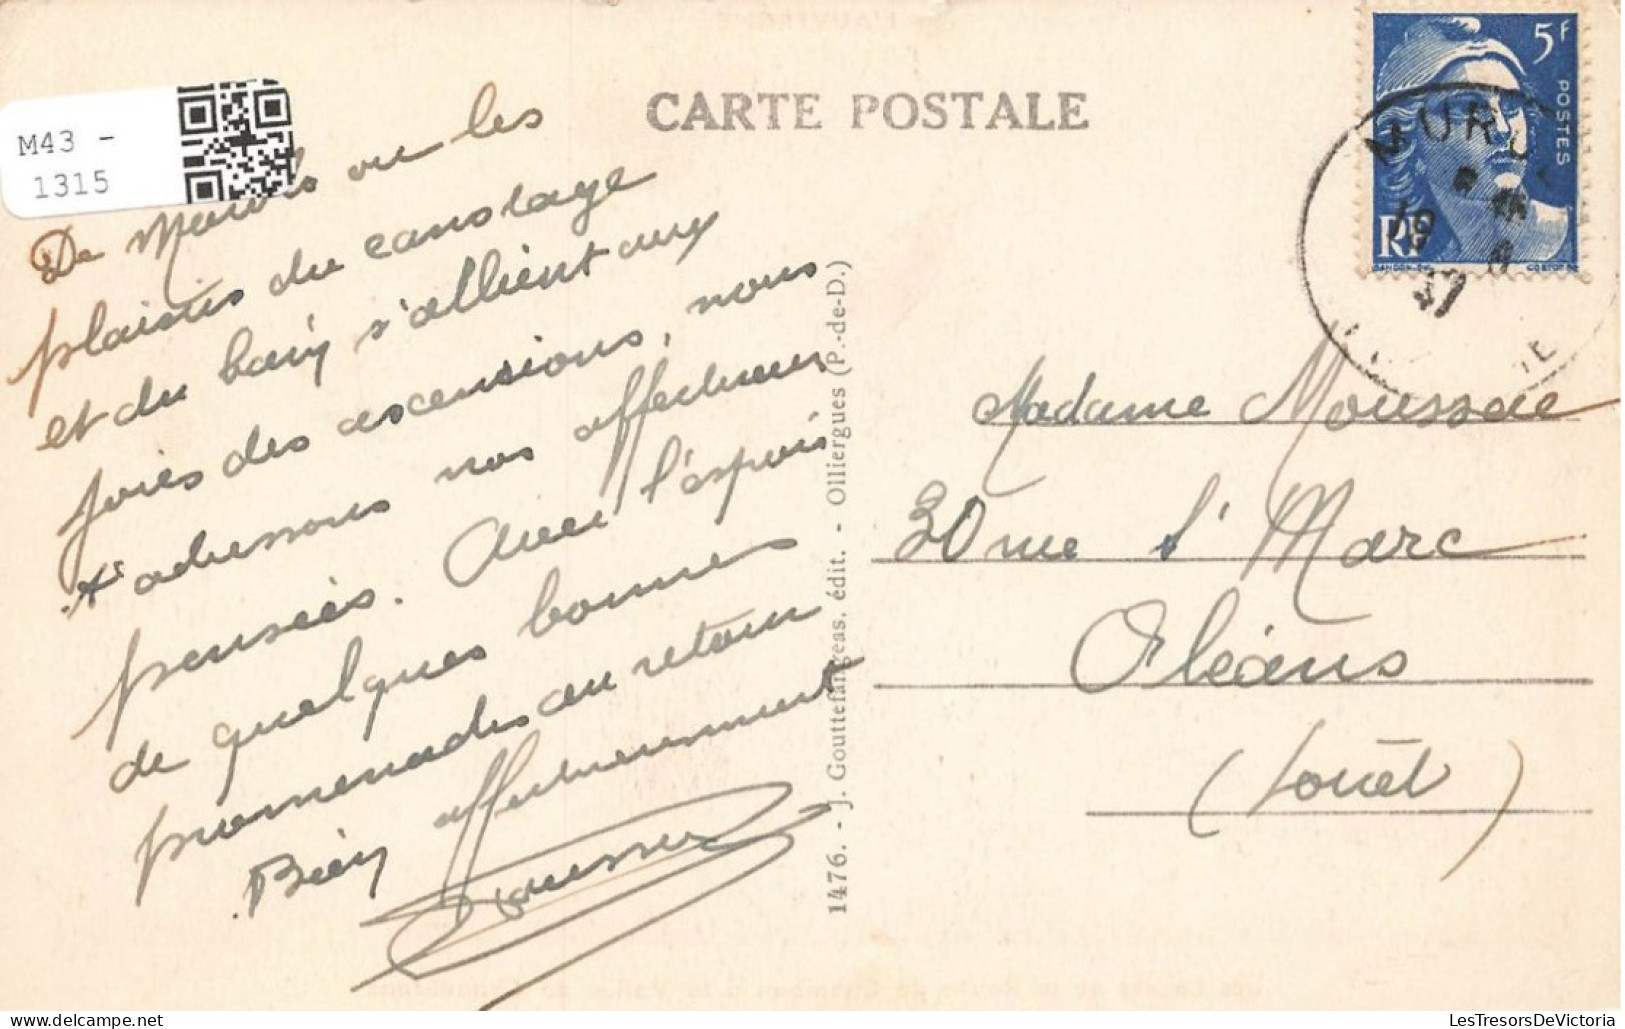 M43 -
1315
CARTE POSTALE
5F
POSTES
RF
De Murols ou les
plaisirs du canotage
et du bain s'allient aux
joies des ascensions, nous
adressons nos affectueuses
pensées. Avec l'espoir
de quelques bonnes
promenades au retour
Bien affectueusement
1476. - J. Gouttefangeas, édit. - Olliergues (P.-de-D.)
Madame
30 rue St Marc
Orléans
(Loiret)
LesTresorsDeVictoria